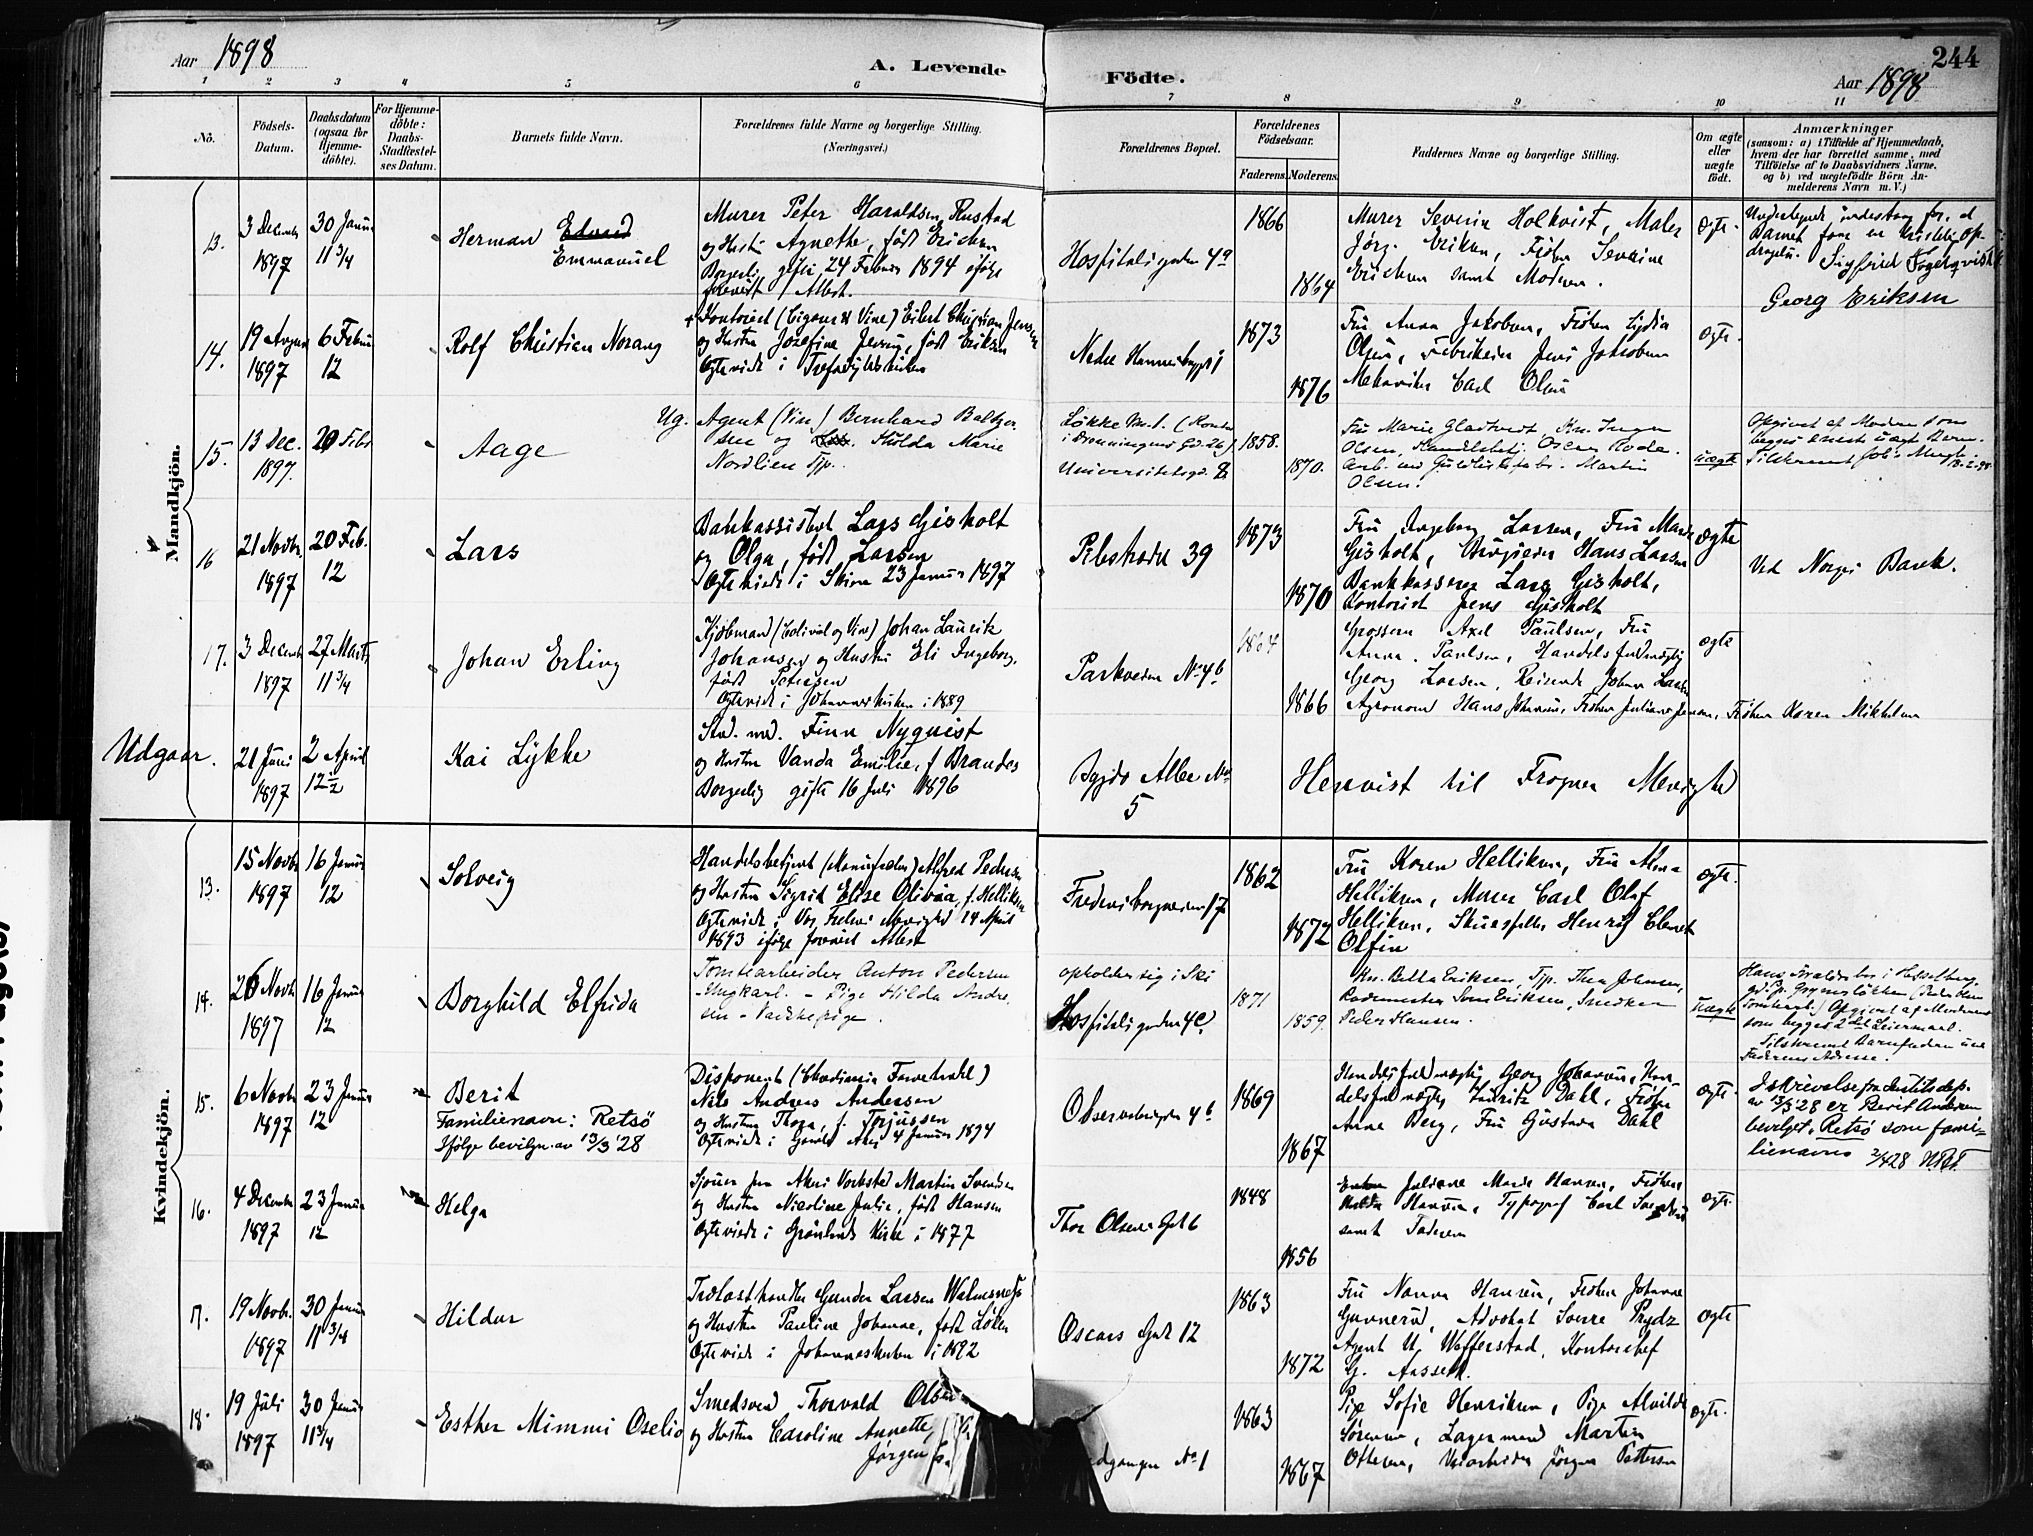 Aar 1898
A. Levende
Födte.
244
Aar 1898
1 2 3 4 5 6 7 8 9 10 11
No.
Födsels-
Datum.
Daabsdatum
(ogsaa for
Hjemme-
döbte).
For Hjemme-
döbte:
Daabs-
Stadfæstel-
ses Datum.
Barnets fulde Navn.
Forældrenes fulde Navne og borgerlige Stilling.
(Næringsvei.)
Forældrenes Bopæl.
Forældrenes
Födselsaar.
Faderens.
Moderens.
Faddernes Navne og borgerlige Stilling.
Om ægte
eller
uægte
födt.
Anmærkninger
(saasom: a) i Tilfælde af Hjemmedaab,
hvem der har forrettet samme, med
Tilföielse af to Daabsvidners Navne,
og b) ved uægtefödte Börn An-
melderens Navn m. V.)
Mandkjön.
13.
3 Decemb
1897
30 Janua
11 3/4
Herman Edvard
Emmanuel
Murer Peter Haraldsen Rustad
og Hustru Agnethe, født Erichsen
Borgerlig gifte 24 Februar 1894 ifølge
forevist Attest.
Hospitalsgaden 4a
1866
1864
Murer Severin Holkvist, Maler
Jörg. Eriksen, Frøken Severine
Erichsen samt Moderen.
ægte.
Barnet
Sigfrid Fogelqvist
Georg Eriksen
14.
19 August
1897
6 Februa
12
Rolf Christian Norang
Kontorist (Cigarer & Vine) Eilert Christian Jensen
og Hustru Josefine Jensen, født Eriksen
Ægteviede i Trefoldigh.kirken
1873
1876
Fru Anna Jakobsen, Frøken Lydia
Olsen, Fabrikeier Jens Jakobsen
Mekaniker Carl Olsen
ægte.
15.
13 Dec.
1897.
20 Febr
Aage
Ug. Agent (Vin) Bernhard Baltzer-
sen og Hulda Marie
Nordlien Tjp.
Universitetsgd. 8
1858.
1870.
Fru Marie Gladtvedt, Kn. Inger
Olsen, Handelsbetj. Oscar Rode.
Arb. ved Guldlistefabr. Martin
Olsen.
uægte
Opgivet af Moderen som
begges eneste uægt Barn.
16
21 Novbr
1897
20 Feb.
12
Lars
Bankassistent Lars Gisholt
og Olga, født Larsen
Ægteviede i Skien 23 Januar 1897
Pilestrædet 39
1873
1870
Fru Ingeborg Larsen, Fru Marie
Gisholt, Brugseier Hans Larsen
Bankkasserer Lars Gisholt,
Kontorist Jens Gisholt
ægte
Ved Norges Bank.
17.
3 Decemb
1897
27 Marts
11 3/4
Johan Erling
Kjøbmand (Colonial og Vine) Johan Laurits
Johansen og Hustru Eli Ingeborg,
født Petersen
Ægteviede i Johanneskirken i 1889
Parkveien No 4b
1864
1866
Grosserer Axel Paulsen, Fru
Anna Paulsen, Handelsfuldmægtig
Georg Larsen, Reisende Johan Larsen
Agronom Hans Johansen, Frøken Juliane Jensen, Frøken Karen Mikkelsen
ægte
Udgaar.
21 Juni
1897
2 April
12 1/2
Kai Lykke
Stud. med. Finn Nyquist
og Hustru Vanda Emilie, f. Brandes
Borgerlig gifte 16 Juli 1896
Bygdø Allee No
5
Henvist til Frogner Menighed
Kvindekjön.
13.
15 Novbr
1897
16 Januar
12
Solveig
Handelsbetjent (Manufaktur) Alfred Pedersen
og Hustru Sigrid Elise Olivia, f. Helliksen
Ægteviede i Vor Frelsers Menighed 14 April
1893 ifølge forevist Attest
Frederiksborgveien 17
1862
1872
Fru Karen Helliksen, Fru Alma
Helliksen, Murer Carl Olaf
Helliksen, Skuespiller Henrik Clemet
Olsen
ægte.
14.
26 Novbr
1897
16 Januar
12
Borghild Elfrida
Tomtearbeider Anton Pedersen
Ungkarl. – Pige Hilda Andre-
sen – Vaskepige.
opholder sig i Ski
Hospitalsgaden 4c
1871
1859.
Kn. Betta Eriksen, Tjp. Thea Johnsen,
Rodemester Eriksen, Snedker
Peder Hansen.
uægte
Opgivet af Moderen
som begges 2det Leiermaal.
15.
6 Novbr
1897
23 Januar
12
Berit
Familienavn: Retsö
Ifølge bevilgn. av 13/3 28
Disponent (Christiania Farvehandel)
Nils Andreas Andersen
og Hustru Thora, f. Torjussen
Ægteviede i Gamle Aker 4 Januar 1894
Observatoriegden 4b
1869
1867
Handelsfuldmægtig Georg Johansen, Han-
delsfuldmægtig Lauritz Dahl, Frøken
Anna Berg, Fru Gustava Dahl
ægte.
I skrivelse fra Justitsdep.
av 13/3 28 er Berit Andersen
bevilget Retsö som fami-
lienavn 2/4 28
16.
4 Decembr
1897
23 Januar
12
Helga
Sjouer paa Akers Værksted Martin Svendsen
og Hustru Nicoline Julie, født Hansen
Ægteviede i Grønlands Kirke i 1877
Thor Olsens Gd 6
1848
1856
Juliane Marie Hansen, Frøken
Hulda Hansen, Typograf Carl Svendsen
samt Faderen
ægte.
17.
19 Novbr.
1897
30 Januar
11 3/4
Hildur
Trælasthandler Gunder Larsen Walmsnæs
og Hustru Pauline Johanne, født Løken
Ægteviede i Johanneskirken i 1892
Oscars Gade 12
1863
1872
Fru Nanna Hansen, Frøken Johanne
Gunnerud, Advokat Sverre Prydz
Agent U. Wefferstad, Kontorchef
G. Aassen.
ægte
18.
19 Juli
1897
30 Januar
11 3/4
Esther Mimmi Oselio
Smedsvend Thorvald Olsen
og Hustru Caroline Annette,
Jørgen
dgangen No 1
1863
1867
Pige Sofie Henriksen, Pige Alvilde
Sørensen, Lagermand Martin
Ottesen, Jørgen Pettersen
ægte.